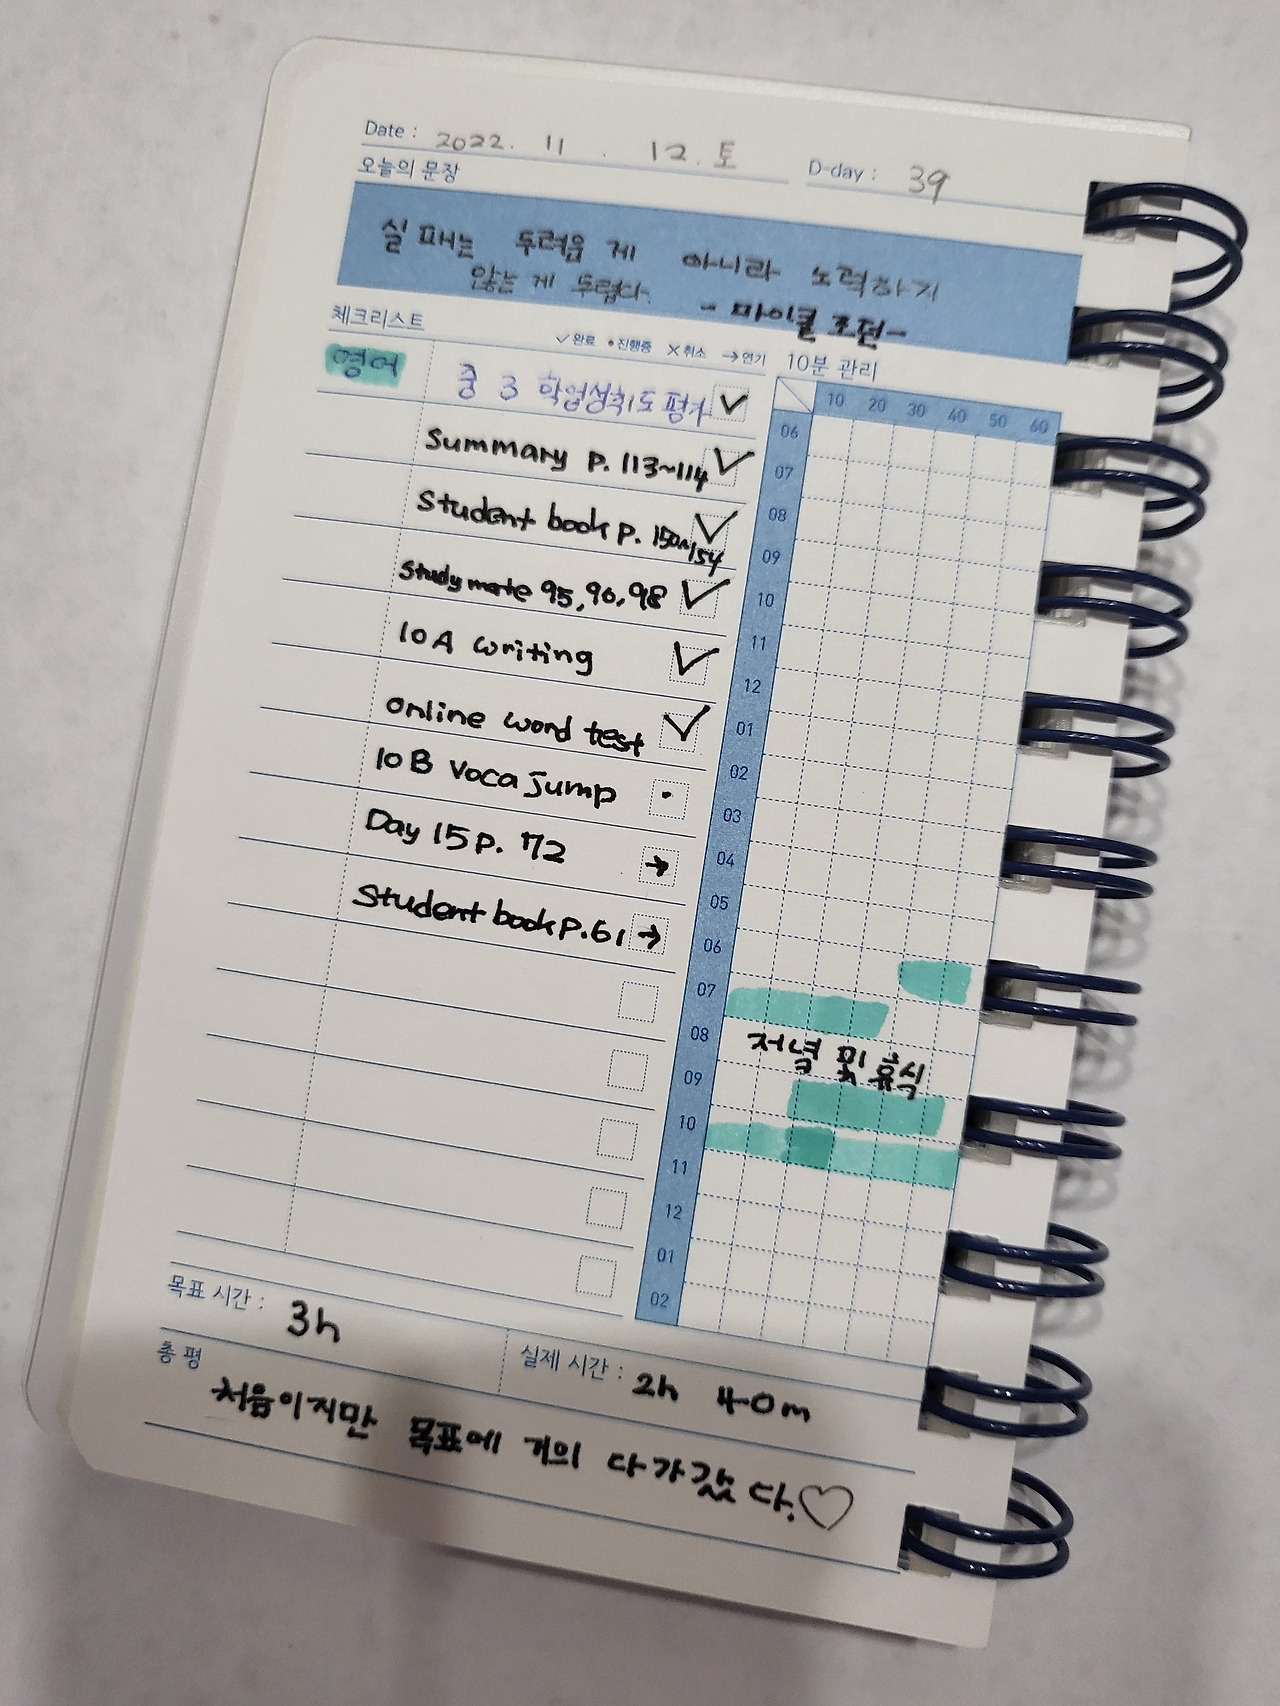 Date : 2022. 11 . 12. 토 D-day : 39
오늘의 문장
실패는 두려운 게 아니라 노력하지
않는 게 두렵다. - 마이클 조던-
체크리스트 ✓완료 •진행중 ×취소 →연기 10분 관리
영어 중 3 학업성취도 평가 ✓
Summary p. 113~114 ✓
Student book p. 150~154 ✓
Study mate 95, 96, 98 ✓
10A writing ✓
online word test ✓
10B Voca jump •
Day 15 p. 72 →
Student book p.61 →
10 20 30 40 50 60
06
07
08
09
10
11
12
01
02
03
04
05
06
07
08 저녁 및 휴식
09
10
11
12
01
02
목표 시간 : 3h 실제 시간 : 2h 40m
총 평
처음이지만 목표에 거의 다가갔다.♡